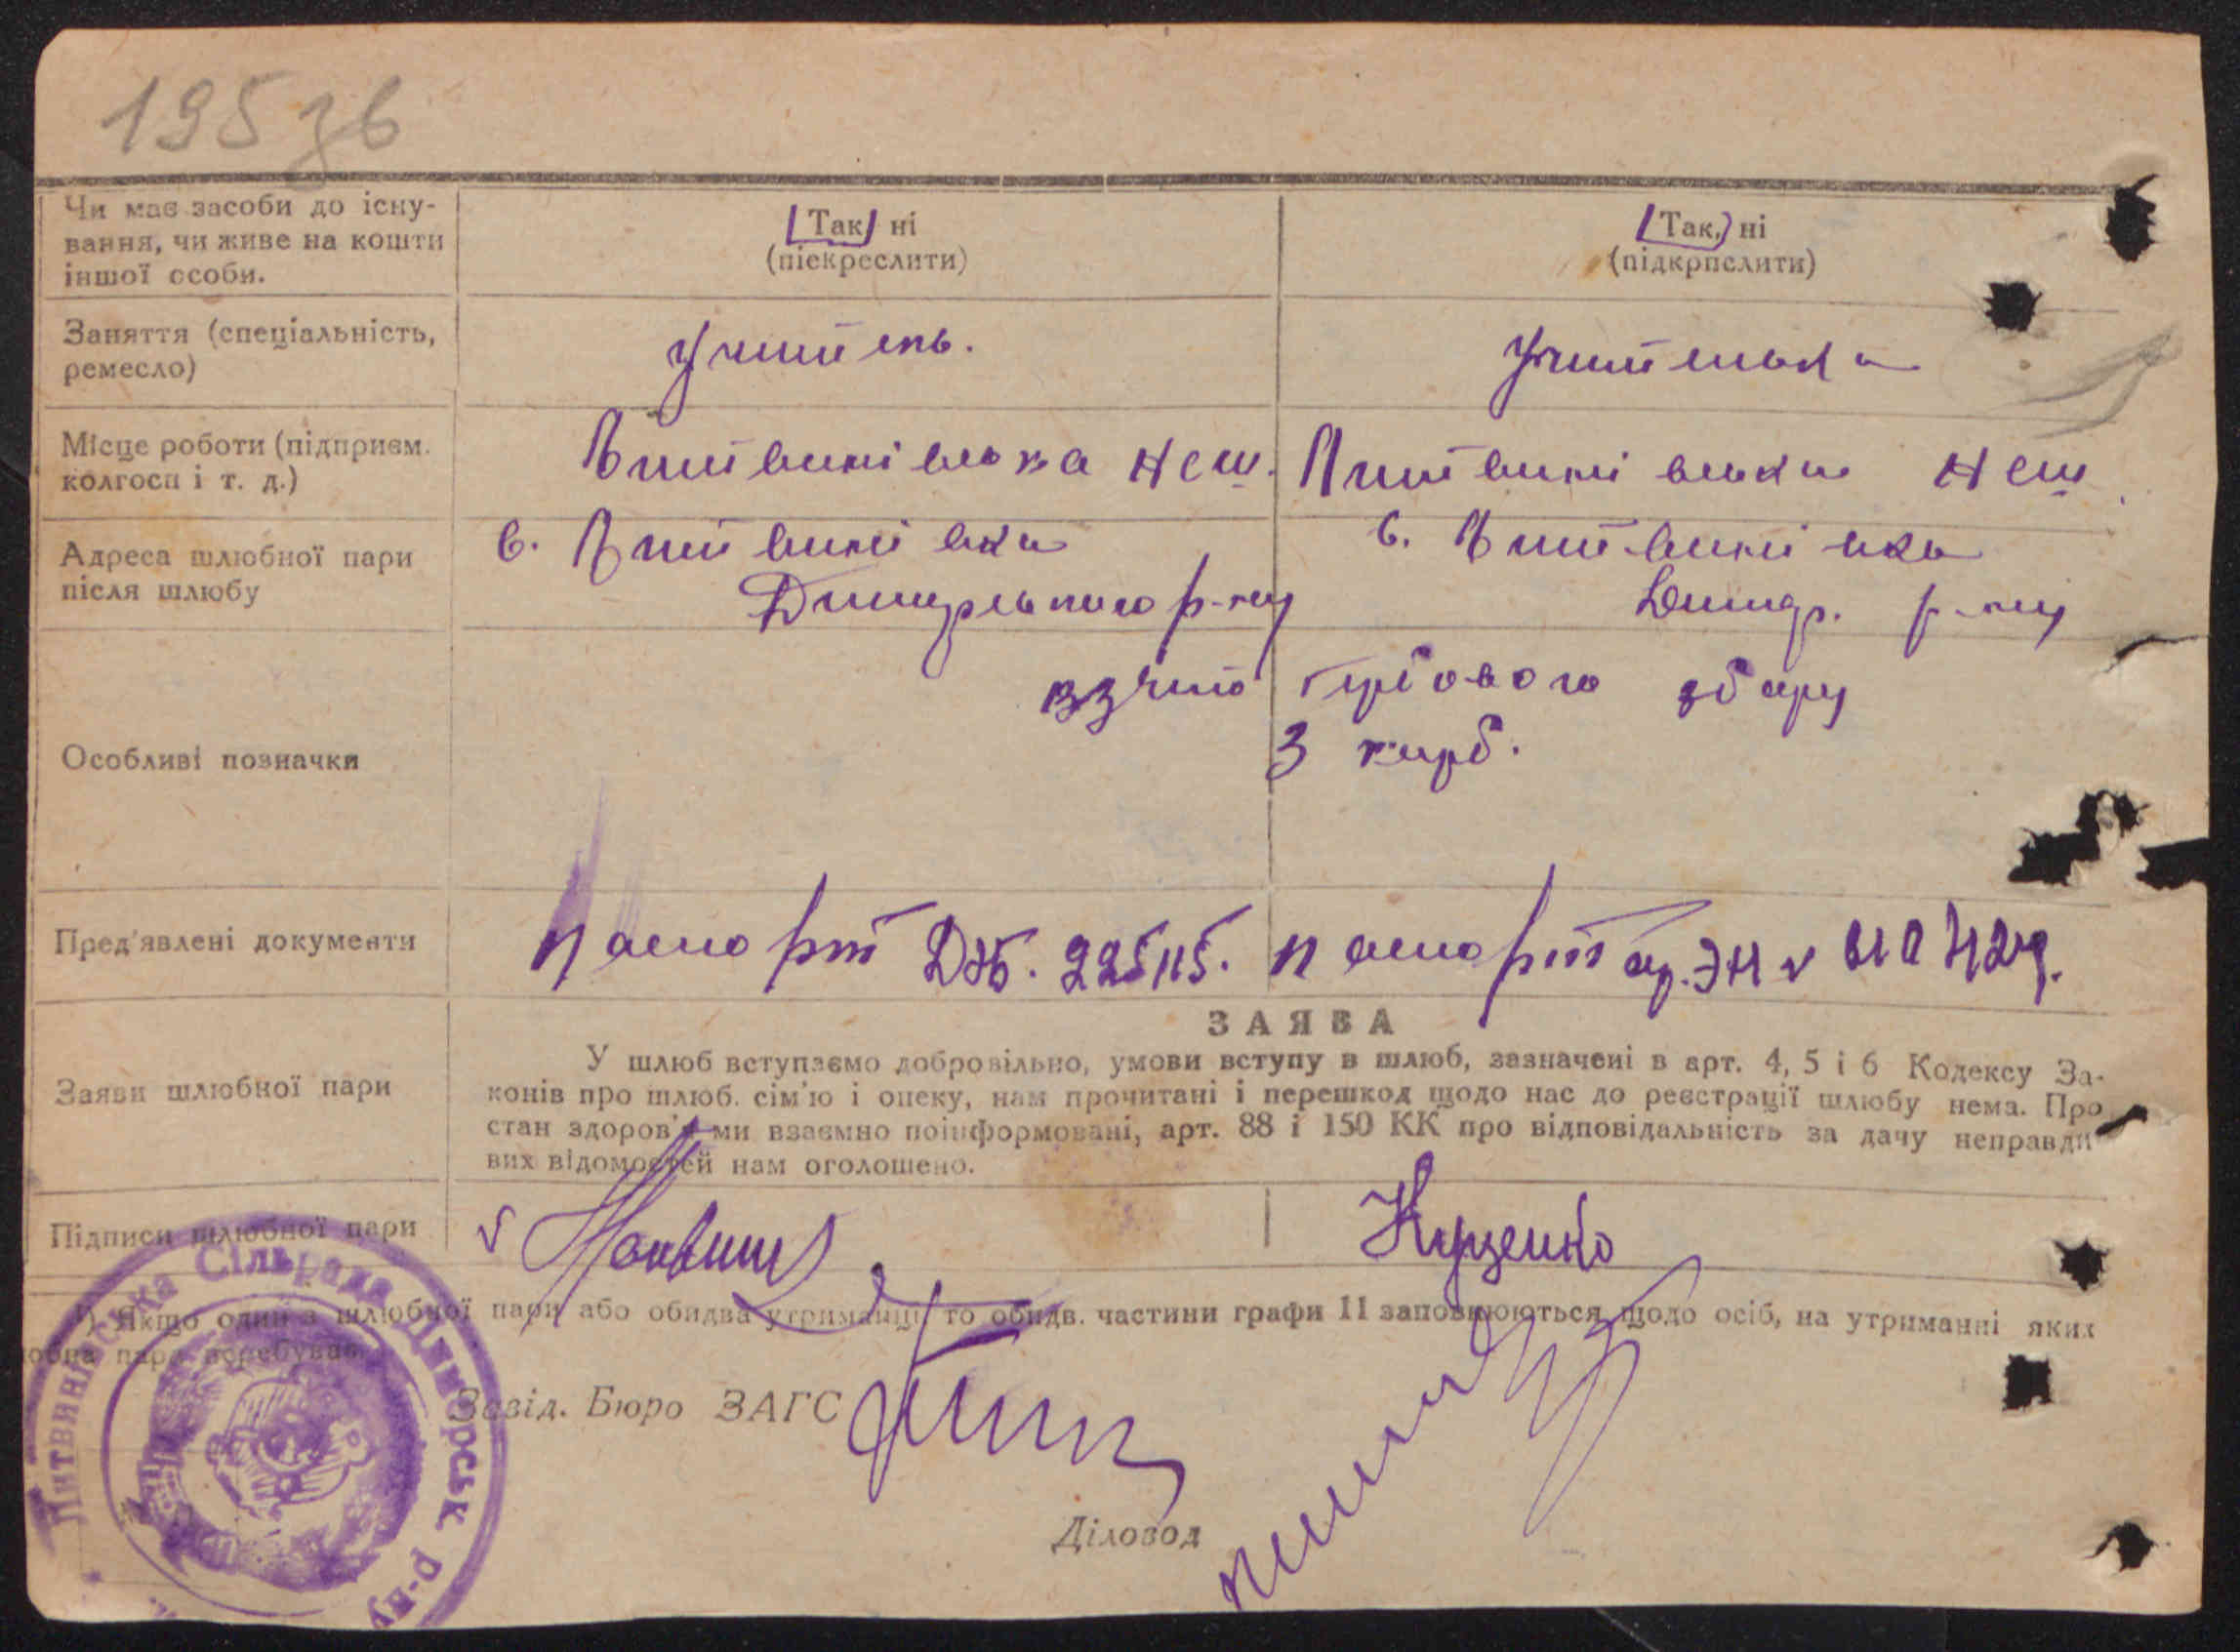 195 зв
Чи має засоби до існу-
вання, чи живе на кошти
іншої особи.
Так ні
(піекреслити)
Так, ні
(підкрпслити)
Заняття (спеціальність,
ремесло)
Учитель.
Учителька
Місце роботи (підприєм.
колгосп і т. д.)
Литвинівська НСШ.
Литвинівська НСШ
Адреса шлюбної пари
після шлюбу
с. Литвинівка
Димерського р-ну
с. Литвинівка
Димер. р-ну
Особливі позначки
взято гербового збору
3 карб.
Пред'явлені документи
паспорт
паспорт
ЗАЯВА
Заяви шлюбної пари
У шлюб вступаємо добровільно, умови вступу в шлюб, зазначені в арт. 4, 5 і 6 Кодексу За-
конів про шлюб. сім'ю і опеку, нам прочитані і перешкод щодо нас до реєстрації шлюбу нема. Про
стан здоров'я ми взаємно поінформовані, арт. 88 і 150 КК про відповідальність за дачу неправди
вих відомостей нам оголошено.
Підписи шлюбної пари
Куценко
*) Якщо один з шлюбної пари або обидва утриманці то обидв. частини графи 11 заповнюються щодо осіб, на утриманні яких
пара перебуває.
Завід. Бюро ЗАГС
Діловод
Литвинівська Сільрада Димерськ р-ну